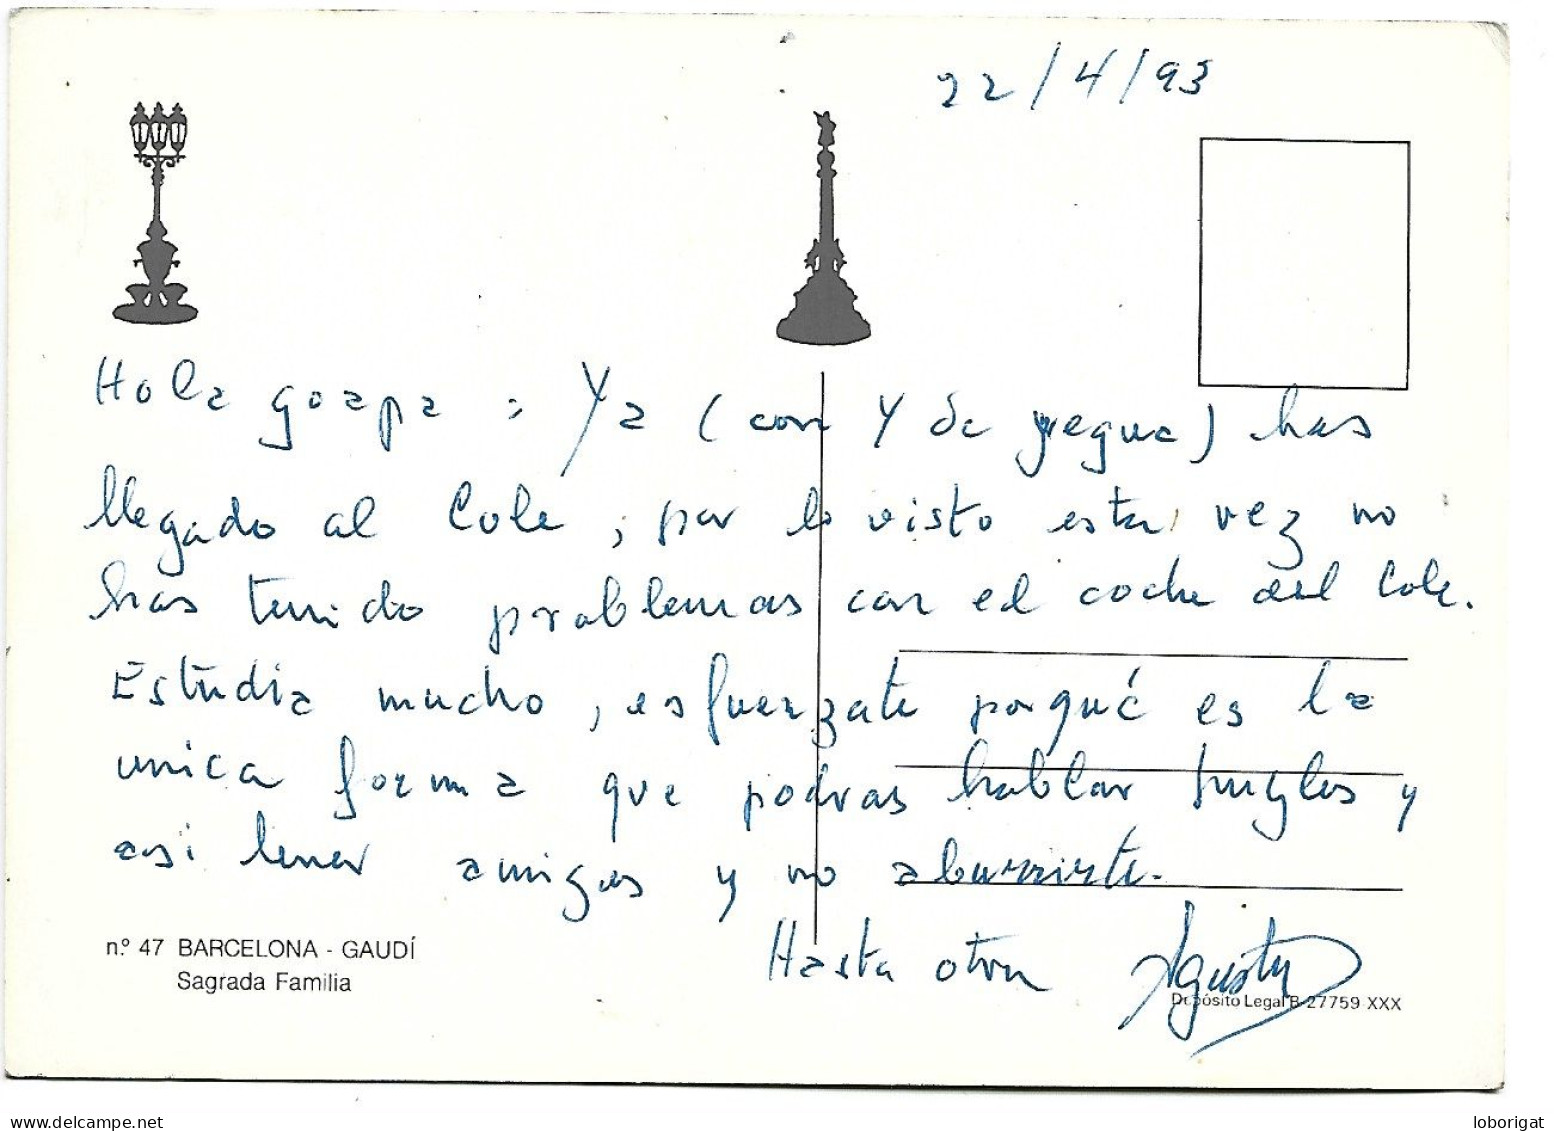 22/4/93
Hola goapa : Ya (con Y de yegua) has
llegado al Cole, por lo visto esta vez no
has tenido problemas con el coche del Cole.
Estudia mucho, esfuerzate porqué es la
unica forma que podras hablar Ingles y
asi tener amigos y no aburrirte.
Hasta otra Agustin
n.º 47 BARCELONA - GAUDÍ
Sagrada Familia
Depósito Legal B-27759-XXX
www.delcampe.net
loborigat